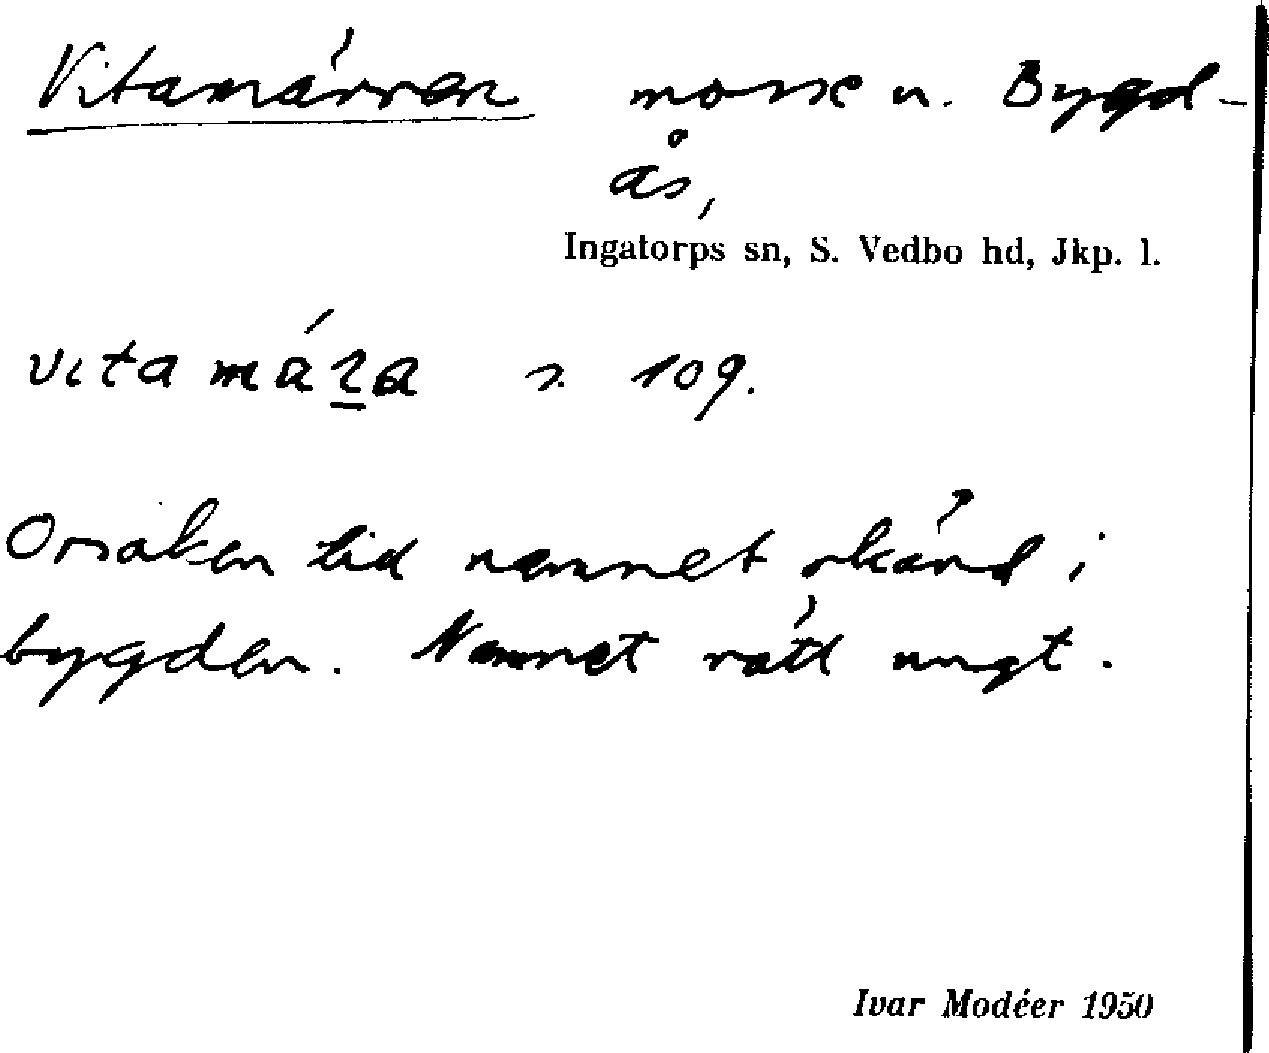 Vitamärren mosse n. Bygd-
ås,
Ingatorps sn, S. Vedbo hd, Jkp. l.
s. 109.
Orsaken till namnet okänd i
bygden. Namnet rätt ungt.
Ivar Modéer 1950